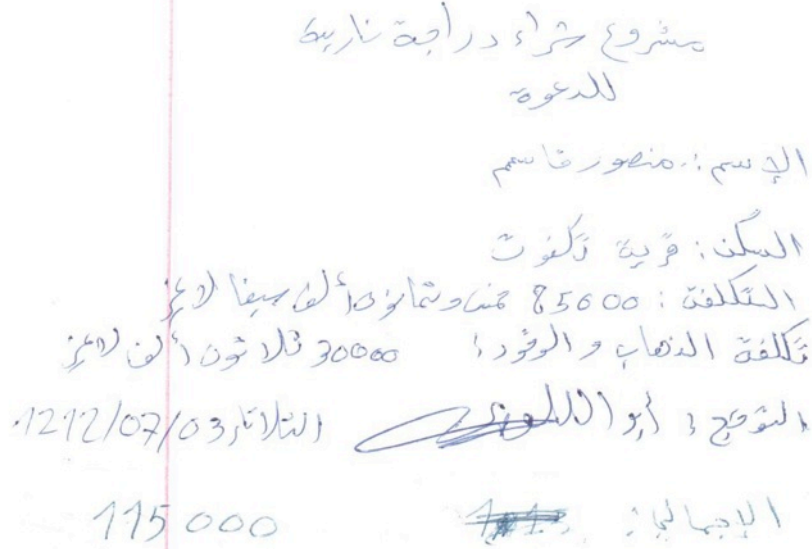 مشروع شراء دراجة نارية
للدعوة
الإسم: منصور قاسم
السكن: قرية تكفوت
التكلفة: 85000 خمس وثمانون ألف سيفا لا غير
تكلفة الذهاب والوقود: 30000 ثلاثون ألف لا غير
التوقيع: أبو الثلاثاء 1212/07/03
الإجمالي: 115 000